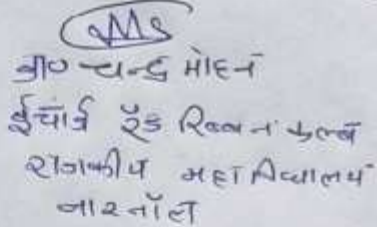 डा० चन्द्र मोहन
ईंचार्ज रैड रिबन कल्ब
राजकीय महाविद्यालय
नारनौल